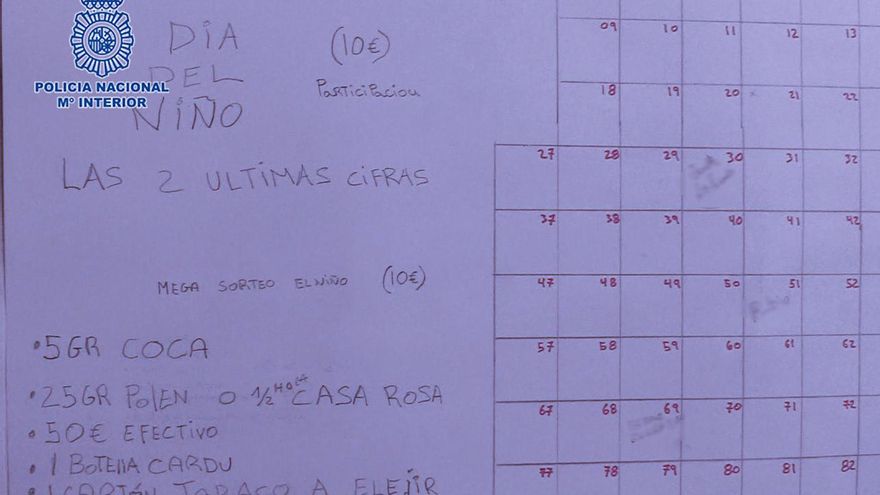 POLICIA NACIONAL
Mº INTERIOR
DIA
DEL
NIÑO
(10€)
PARTICIPACION
LAS 2 ULTIMAS CIFRAS
MEGA SORTEO EL NIÑO (10€)
• 5GR COCA
• 25GR POLEN O 1/2 HOLA CASA ROSA
• 50€ EFECTIVO
• 1 BOTELLA CARDU
• 1 CARTÓN TABACO A ELEJIR
09 10 11 12 13
18 19 20 21 22
27 28 29 30 31 32
37 38 39 40 41 42
47 48 49 50 51 52
57 58 59 60 61 62
67 68 69 70 71 72
77 78 79 80 81 82